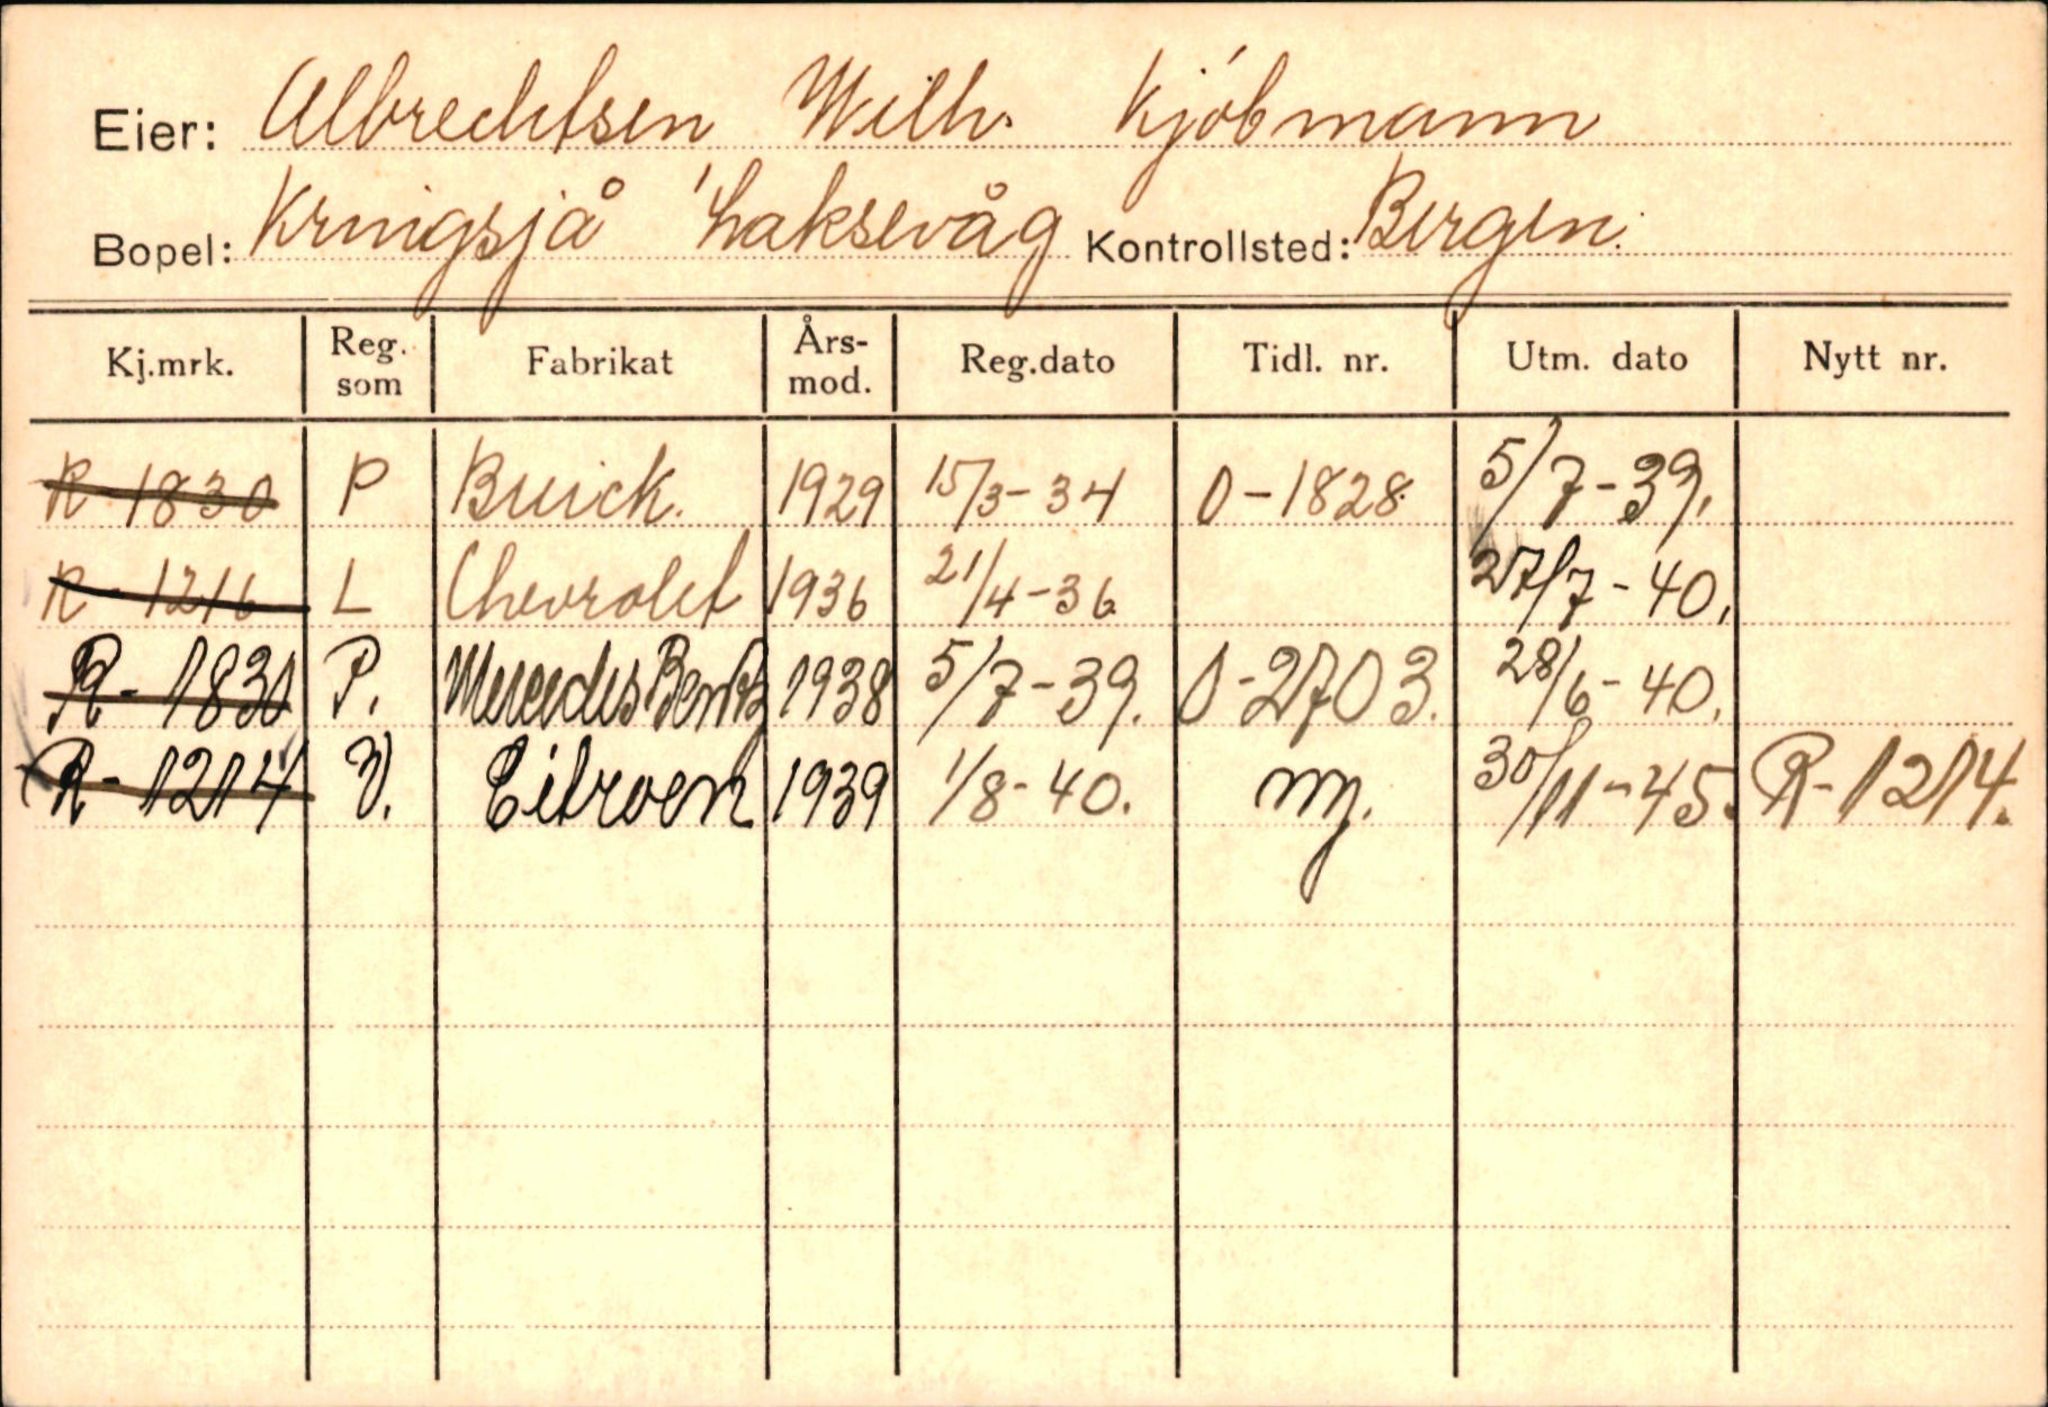 Eier: Albrechtsen Wilh. Kjóbmann
Bopel: Kringsjå Laksevåg Kontrollsted: Bergen.
Kj.mrk. Reg. som Fabrikat Års-mod. Reg.dato Tidl. nr. Utm. dato Nytt nr.
R-1830 P Buick. 1929 15/3-34 O-1828 5/7-39.
R-1216 L Chevrolet 1936 21/4-36 27/7-40.
R-1830 P. Mercedes Bentz 1938 5/7-39. O-2703. 28/6-40.
R-1214 V. Citroen 1939 1/8-40. ny. 30/11-45. R-1214.